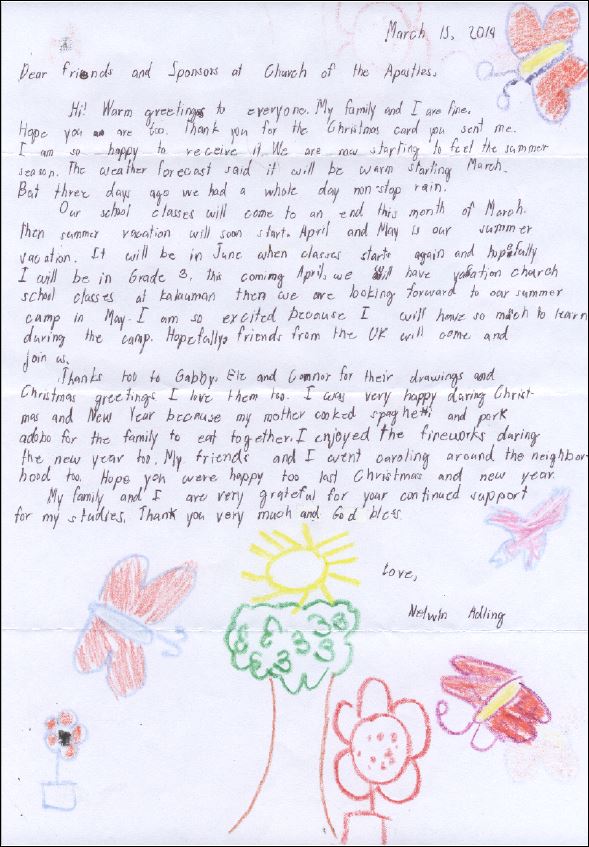 March 15, 2014
Dear friends and Sponsors at Church of the Apostles,
Hi! Warm greetings to everyone. My family and I are fine.
Hope you are too. Thank you for the Christmas card you sent me.
I am so happy to receive it. We are now starting to feel the summer
season. The weather forecast said it will be warm starting March.
But three days ago we had a whole day non-stop rain.
Our school classes will come to an end this month of March.
Then summer vacation will soon start. April and May is our summer
vacation. It will be in June when classes starts again and hopefully
I will be in Grade 3. this coming April, we will have vacation church
school classes at kalauman then we are looking forward to our summer
camp in May. I am so excited because I will have so much to learn
during the camp. Hopefully, friends from the UK will come and
join us.
Thanks too to Gabby, Ele and Connor for their drawings and
Christmas greetings. I love them too. I was very happy during Christ-
mas and New Year because my mother cooked spaghetti and pork
adobo for the family to eat together. I enjoyed the fireworks during
the new year too. My friends and I went caroling around the neighbor-
hood too. Hope you were happy too last Christmas and new year.
My family and I are very grateful for your continued support
for my studies. Thank you very much and God bless.
Love,
Nelwin Adling